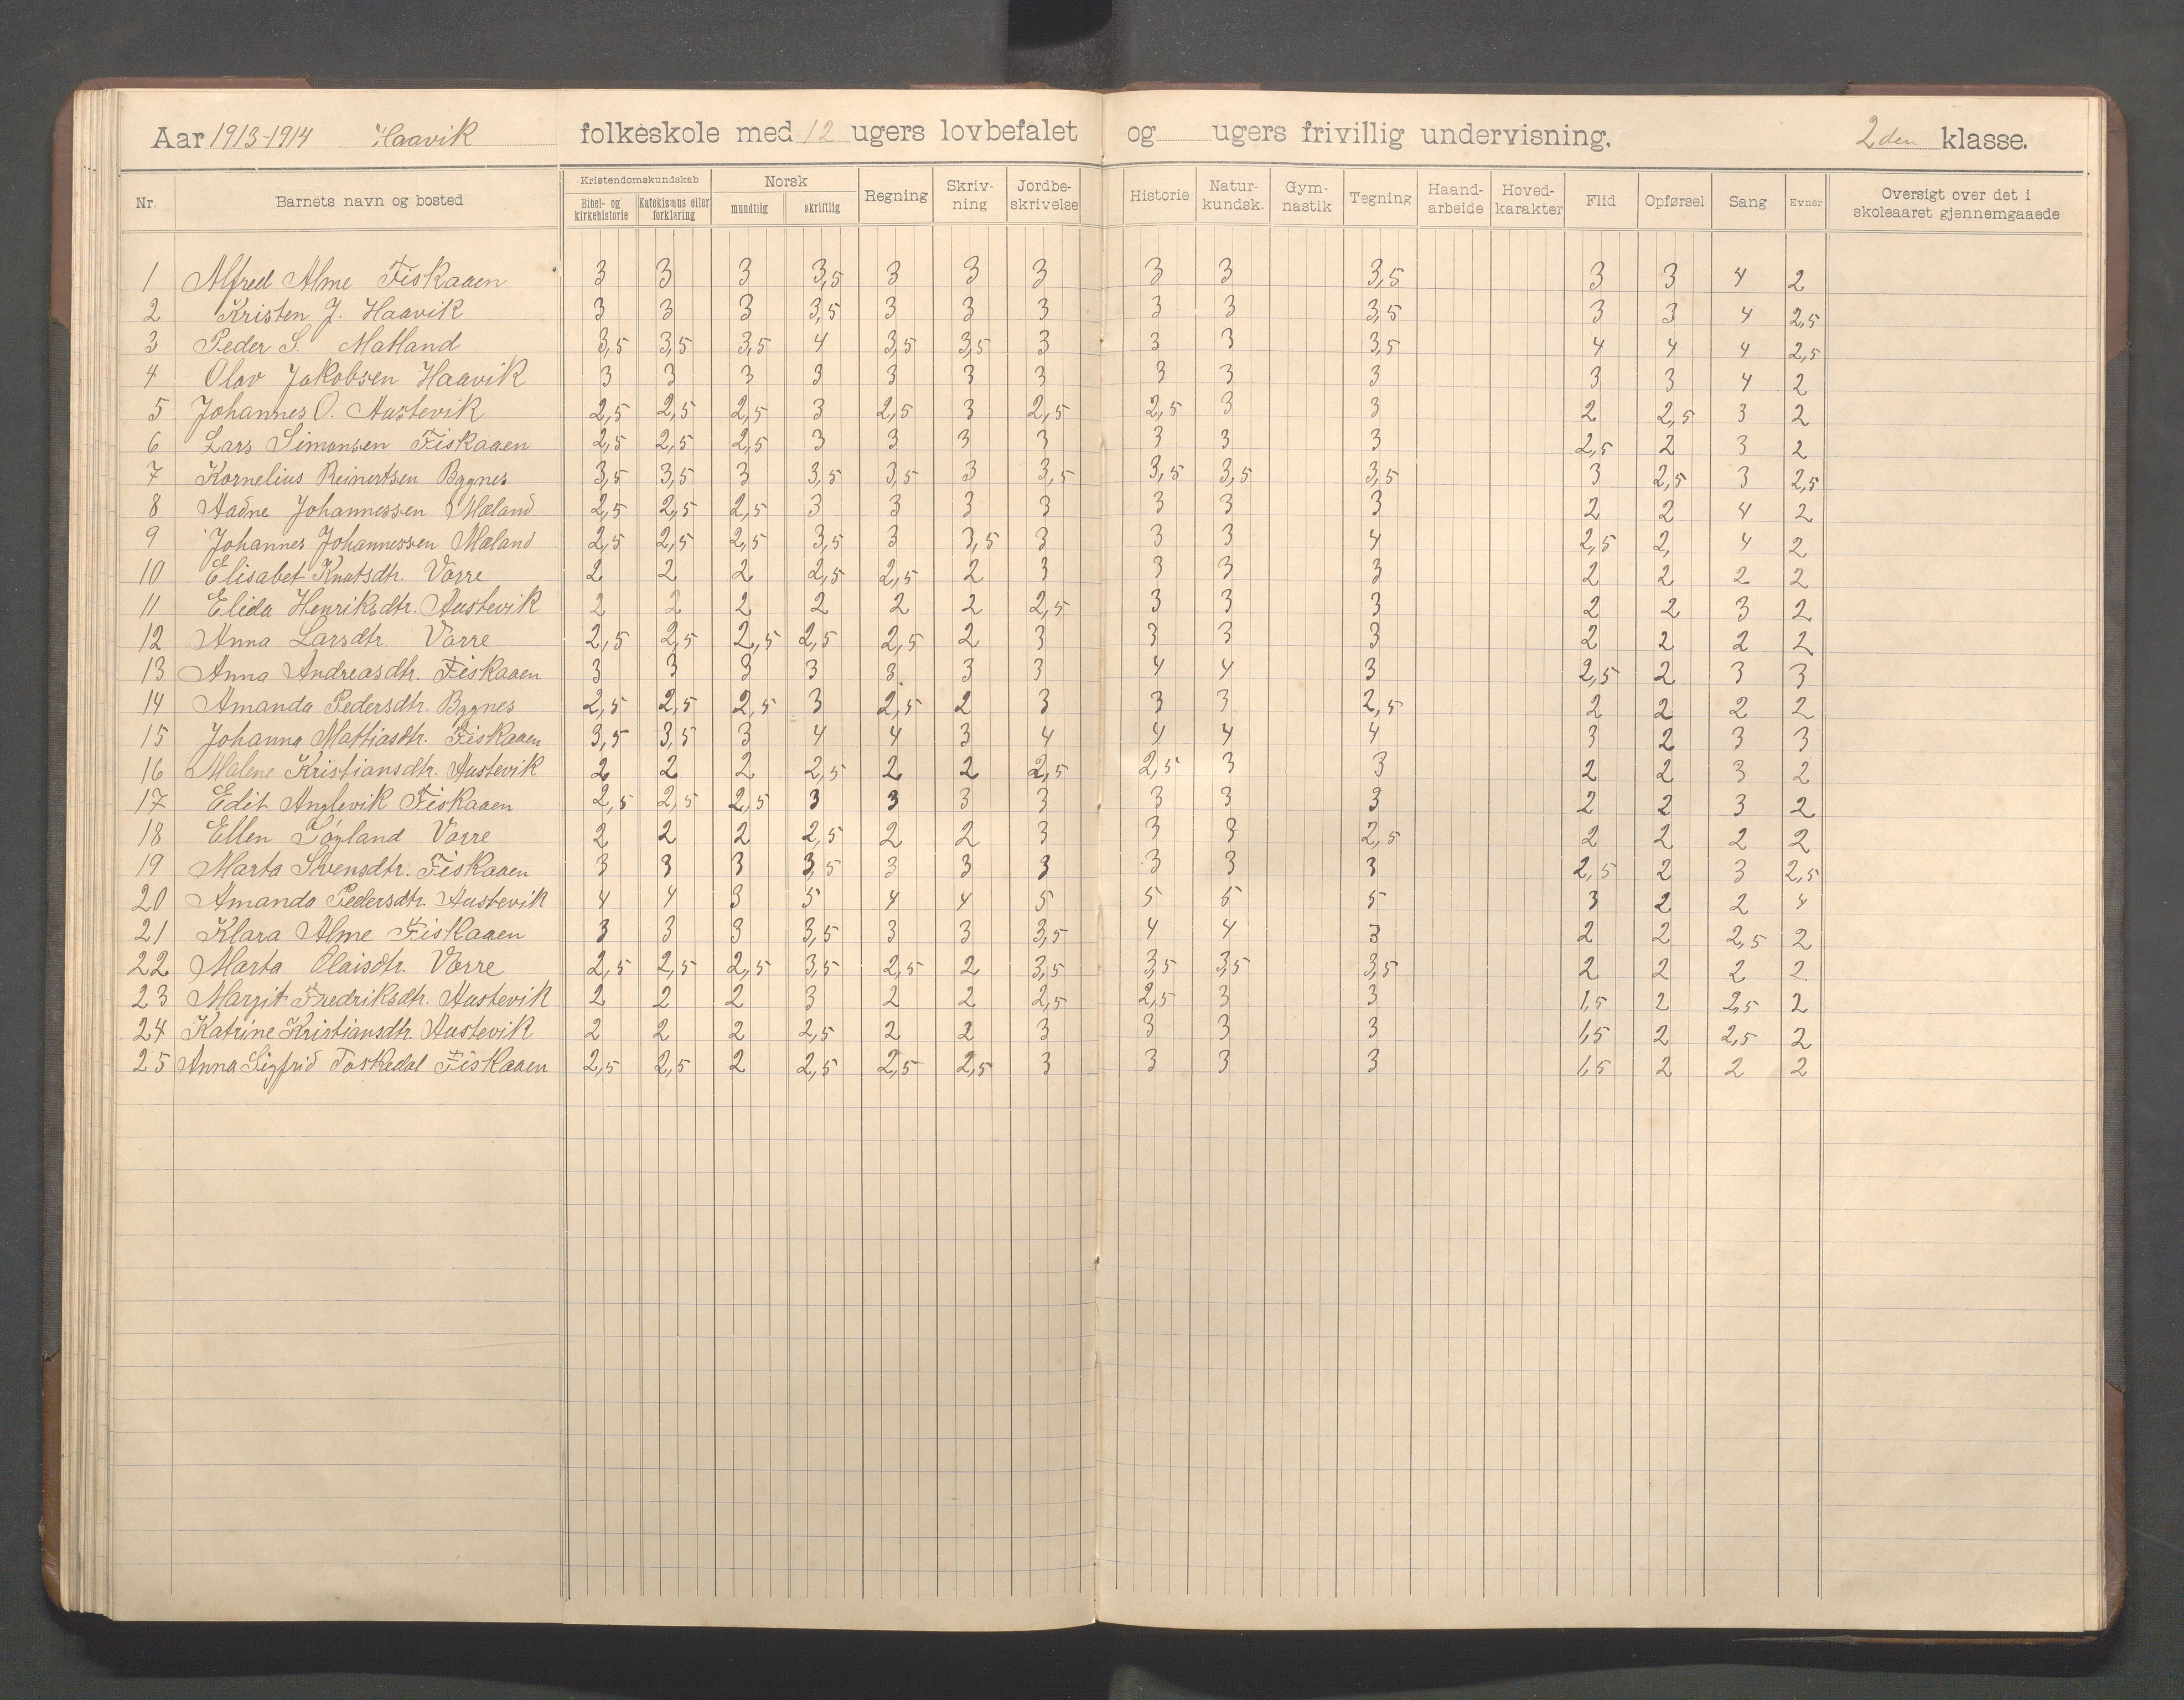 Aar 1913-1914 Haavik folkeskole med 12 ugers lovbefalet og ugers frivillig undervisning. 2den klasse.
Nr. Barnets navn og bosted Kristendomskundskab Bibel- og kirkehistorie Katekismus eller forklaring Norsk mundtlig skriftlig Regning Skrivning Jordbeskrivelse Historie Naturkundsk. Gymnastik Tegning Haandarbeide Hovedkarakter Flid Opførsel Sang Evner Oversigt over det i skoleaaret gjennemgaaede
1 Alfred Alme Fiskaaen 3 3 3 3,5 3 3 3 3 3 3,5 3 3 4 2
2 Kristen J. Haavik 3 3 3 3,5 3 3 3 3 3 3,5 3 3 4 2,5
3 Peder S. Matland 3,5 3,5 3,5 4 3,5 3,5 3 3 3 3,5 4 4 4 2,5
4 Olav Jakobsen Haavik 3 3 3 3 3 3 3 3 3 3 3 3 4 2
5 Johannes O. Austevik 2,5 2,5 2,5 3 2,5 3 2,5 2,5 3 3 2 2,5 3 2
6 Lars Simonsen Fiskaaen 2,5 2,5 2,5 3 3 3 3 3 3 3 2,5 2 3 2
7 Kornelius Reinertsen Bygnes 3,5 3,5 3 3,5 3,5 3 3,5 3,5 3,5 3,5 3 2,5 3 2,5
8 Aadne Johannessen Mæland 2,5 2,5 2,5 3 3 3 3 3 3 3 2 2 4 2
9 Johannes Johannessen Mæland 2,5 2,5 2,5 3,5 3 3,5 3 3 3 4 2,5 2, 4 2
10 Elisabet Knutsdtr. Vorre 2 2 2 2,5 2,5 2 3 3 3 3 2 2 2 2
11 Elida Henriksdtr. Austevik 2 2 2 2 2 2 2,5 3 3 3 2 2 3 2
12 Anna Larsdtr. Vorre 2,5 2,5 2,5 2,5 2,5 2 3 3 3 3 2 2 2 2
13 Anna Andreasdtr. Fiskaaen 3 3 3 3 3 3 3 4 4 3 2,5 2 3 3
14 Amanda Pedersdtr. Bygnes 2,5 2,5 2,5 3 2,5 2 3 3 3 2,5 2 2 2 2
15 Johanna Mattiasdtr. Fiskaaen 3,5 3,5 3 4 4 3 4 4 4 4 3 2 3 3
16 Malene Kristiansdtr. Austevik 2 2 2 2,5 2 2 2,5 2,5 3 3 2 2 3 2
17 Edit Anglevik Fiskaaen 2,5 2,5 2,5 3 3 3 3 3 3 3 2 2 3 2
18 Ellen Vorre 2 2 2 2,5 2 2 3 3 3 2,5 2 2 2 2
19 Marta Svensdtr. Fiskaaen 3 3 3 3,5 3 3 3 3 3 3 2,5 2 3 2,5
20 Amanda Pedersdtr. Austevik 4 4 3 5 4 4 5 5 5 5 3 2 2 4
21 Klara Alme Fiskaaen 3 3 3 3,5 3 3 3,5 4 4 3 2 2 2,5 2
22 Marta Olaisdtr. Vorre 2,5 2,5 2,5 3,5 2,5 2 3,5 3,5 3,5 3,5 2 2 2 2
23 Margit Fredriksdtr. Austevik 2 2 2 3 2 2 2,5 2,5 3 3 1,5 2 2,5 2
24 Katrine Kristiansdtr. Austevik 2 2 2 2,5 2 2 3 3 3 3 1,5 2 2,5 2
25 Anna Sigfrid Toskedal Fiskaaen 2,5 2,5 2 2,5 2,5 2,5 3 3 3 3 1,5 2 2 2